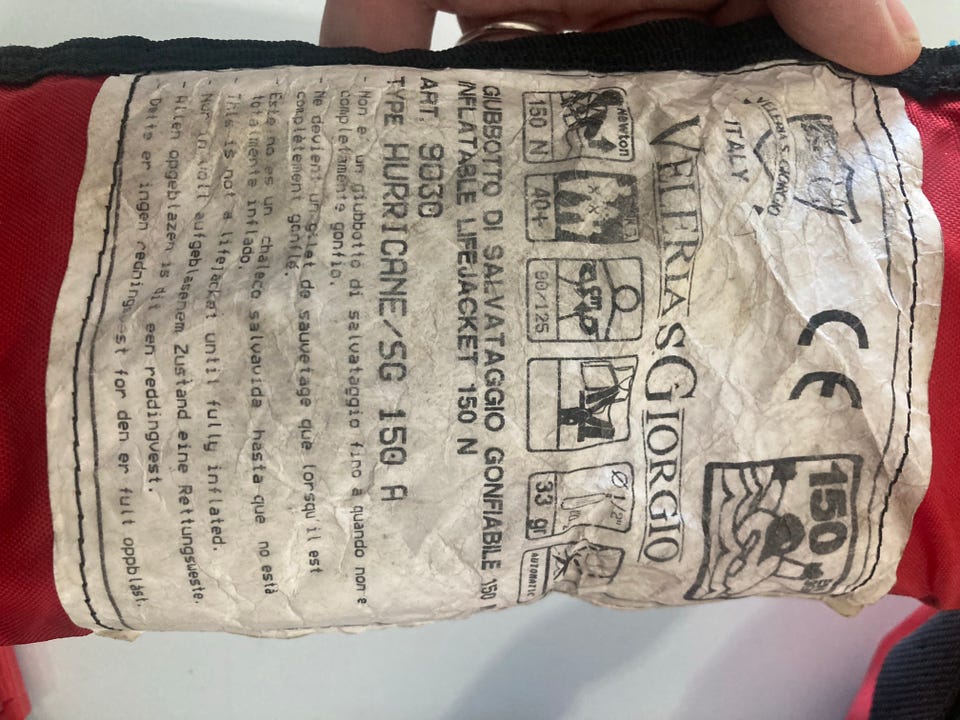 VELERIA S.GIORGIO
ITALY
CE
150
VELERIA S GIORGIO
Newton
150 N
40+
cm
90/125
Ø 1/2"
33 gr
AUTOMATIC
GIUBBOTTO DI SALVATAGGIO GONFIABILE 150
INFLATABLE LIFEJACKET 150 N
ART. 9030
TYPE HURRICANE/SG 150 A
- Non e' un giubbotto di salvataggio fino a quando non e
completamente gonfio.
- Ne devient un gilet de sauvetage que lorsqu'il est
complètement gonflé.
- Este no es un chaleco salvavida hasta que no està
totalmente inflado.
- This is not a lifejacket until fully inflated.
- Nur in voll aufgeblasenem Zustand eine Rettungsweste.
- Allen opgeblazen is dit een reddingvest.
- Dette er ingen redningsvest for den er full oppblåst.